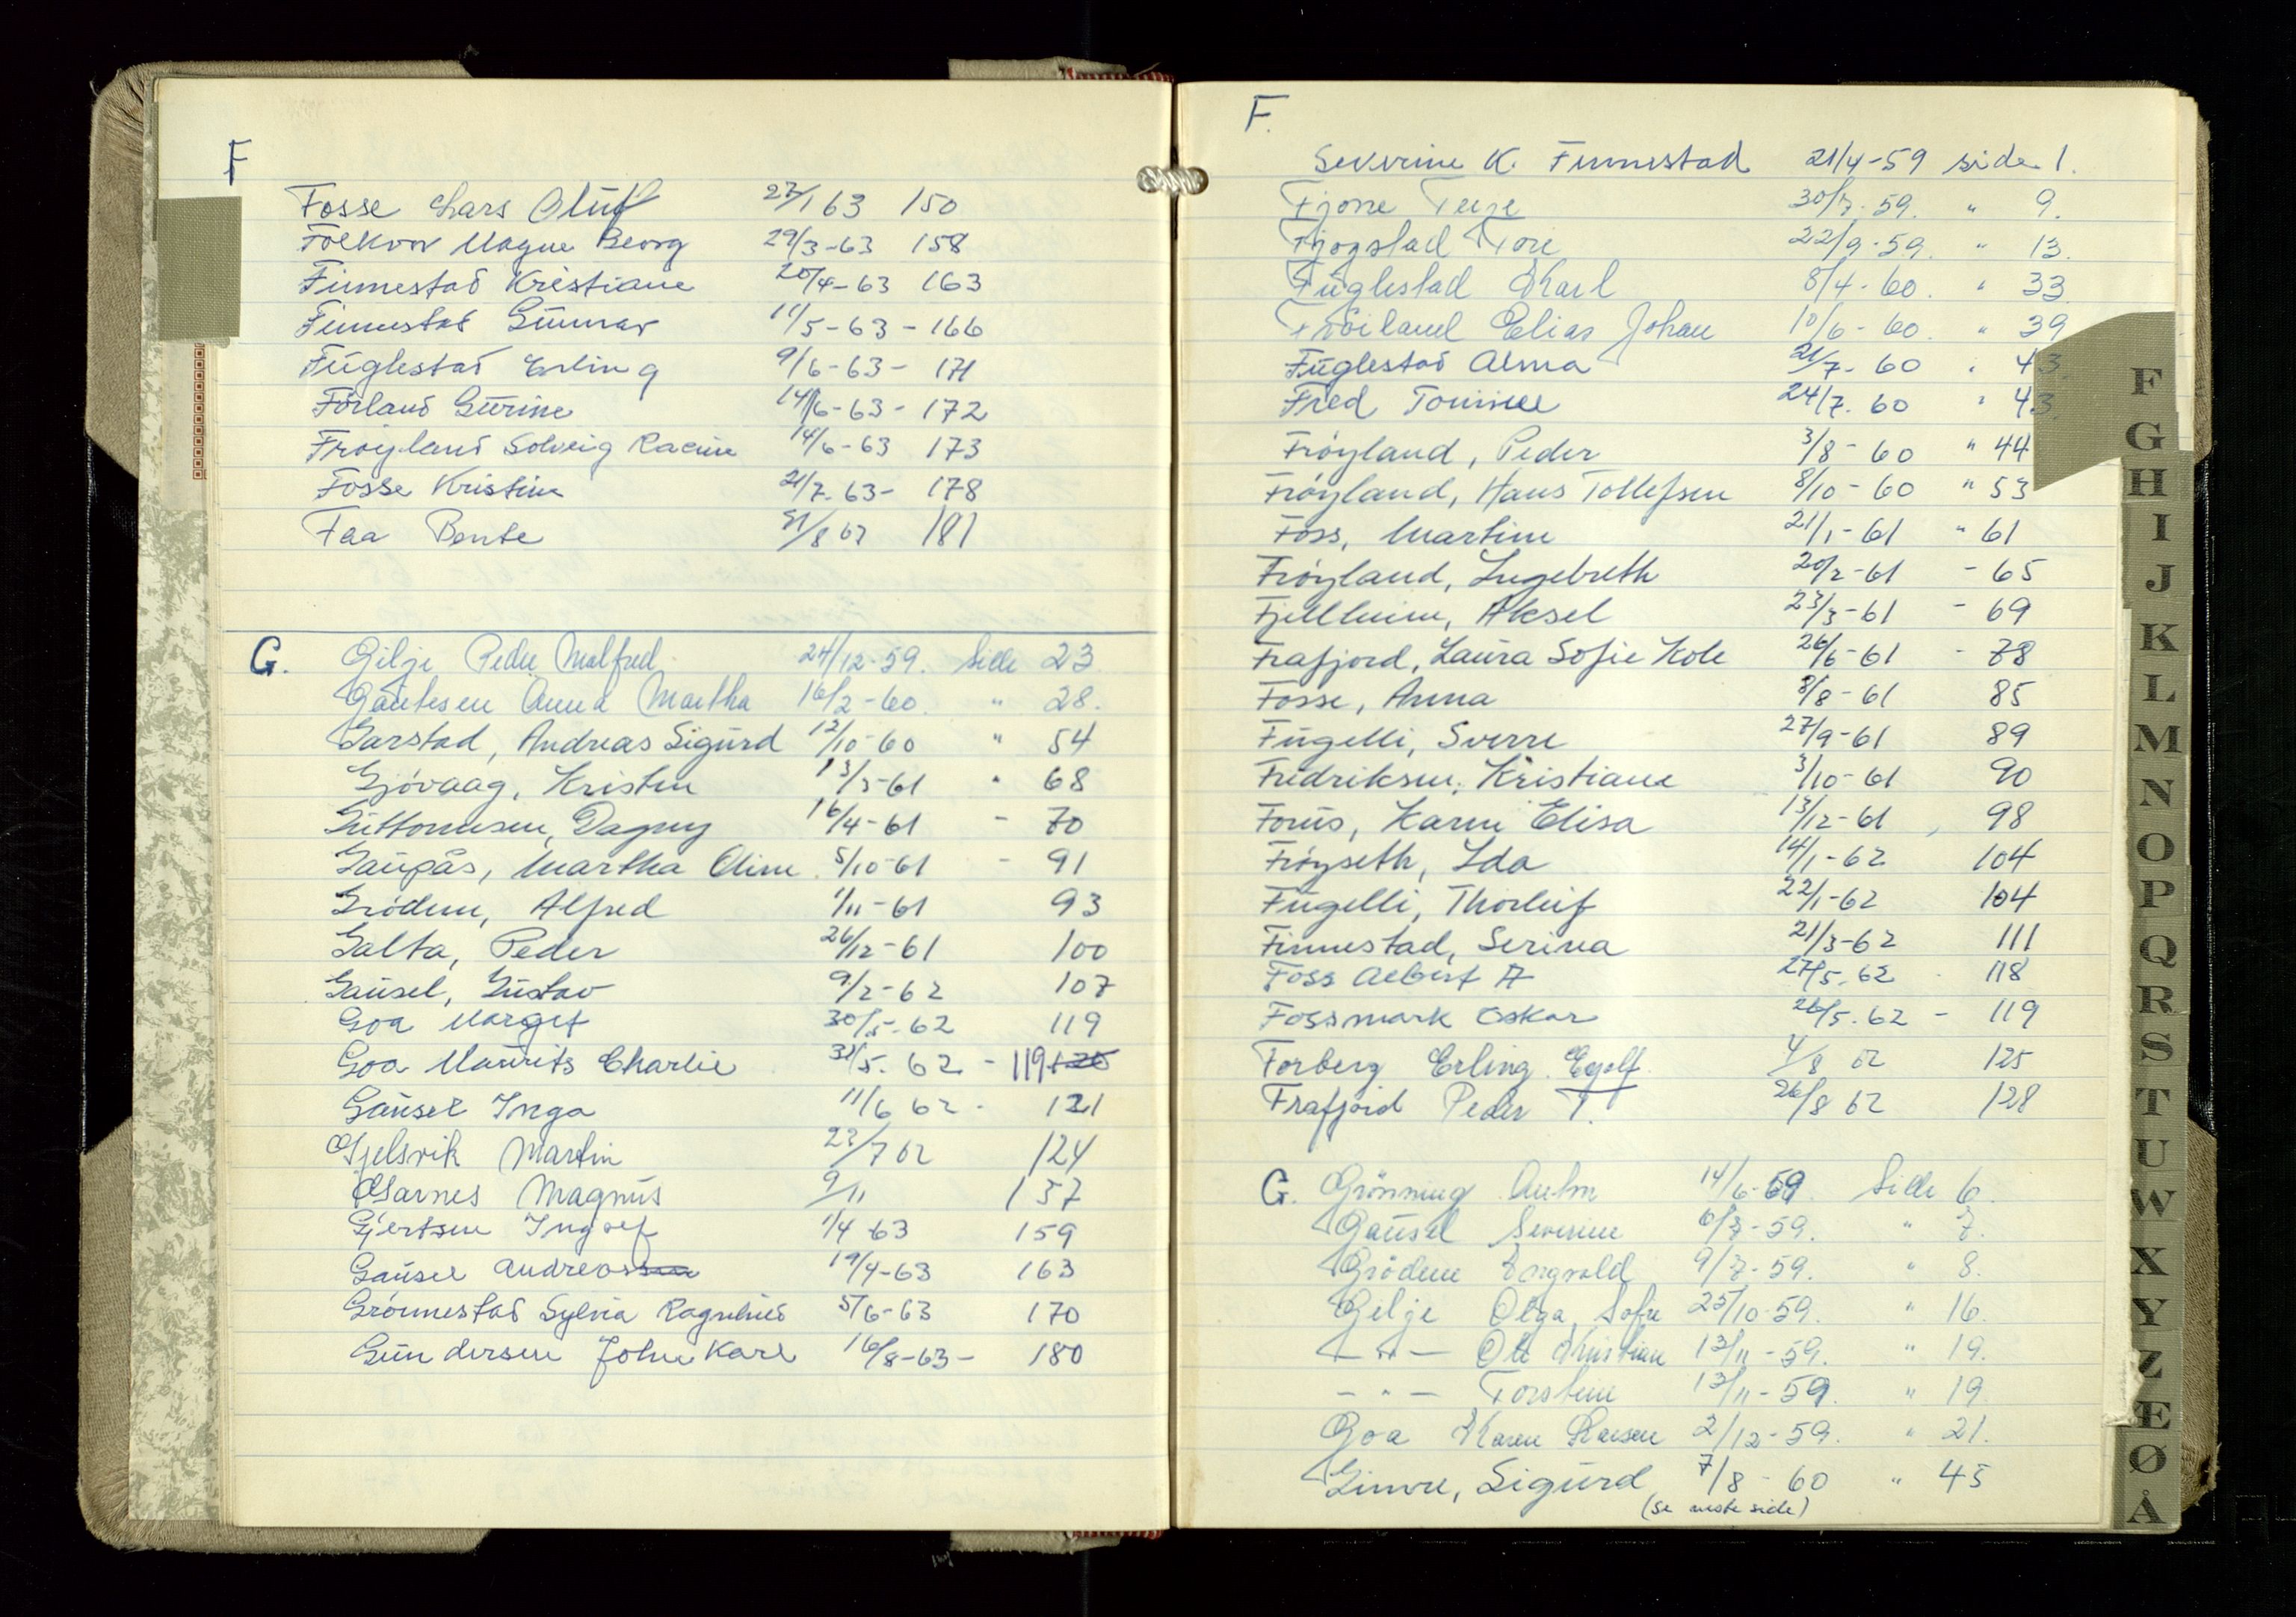 F
Fosse Lars Oluf 27/1 63 150
Folkvor Magne Georg 29/3-63 158
Finnestad Kristiane 20/4-63 163
Finnestad Gunnar 11/5-63 - 166
Fuglestad Erling 9/6-63 - 171
Förland Gurine 14/6-63 - 172
Frøyland Solveig 14/6-63 173
Fosse Kristine 21/7-63 - 178
Faa Bente 31/8 63 181
G. Gilje Peder Malfred 24/12-59. Side 23
Gautesen Anna Martha 16/2-60. " 28.
Garstad, Andreas Sigurd 12/10-60 " 54
Gjövaag, Kristen 13/3-61 " 68
Guttormsen, Dagny 16/4-61 - 70
Gaupås, Martha Oline 5/10-61 - 91
Grödem, Alfred 1/11-61 93
Galta, Peder 26/12-61 100
Gausel, Gustav 9/2-62 107
Goa Marget 30/5-62 119
Goa Maurits Charlie 31/5. 62 - 119 120
Gausel Inga 11/6 62 - 121
Gjelsvik Martin 22/7 62 124
Garnes Magnus 9/11 137
Gjertsen Ingolf 1/4 63 159
Gausel Andreassen 19/4-63 163
Grönnestad Sylvia Ragnhild 5/6-63 170
Gundersen John Karl 16/8-63 - 180
F.
Severine K. Finnestad 21/4-59 side 1.
Fjone Terje 30/7-59. " 9.
Fjogstad Tore 22/9-59. " 13.
Fuglestad Karl 8/4-60. " 33
Fröiland Elias Johan 10/6-60. " 39
Fuglestad Alma 21/7-60 " 43
Fred Tommee 24/7. 60 " 43
Frøyland, Peder 3/8-60 " 44
Frøyland, Hans Tollefsen 8/10-60 " 53
Foss, Martin 21/1-61 " 61
Frøyland, Ingebreth 20/2-61 - 65
Fjellheim, Aksel 23/3-61 - 69
Frafjord, Laura Sofie Kole 26/6-61 - 78
Fosse, Anna 8/8-61 85
Fugelli, Sverre 27/9-61 89
Fredriksen, Kristiane 3/10-61 90
Forus, Karen Elisa 13/12-61 98
Frøyseth, Ida 14/1-62 104
Fugelli, Thorleif 22/1-62 104
Finnestad, Serina 21/3-62 111
Foss Albert A 27/5. 62 118
Fossmark Oskar 26/5. 62 - 119
Forberg Erling Egolf 4/8 62 125
Frafjord Peder T. 26/8 62 128
G. Grönning Anton 14/6-59 Side 6.
Gausel Severine 6/7-59. " 7.
Grödem Ingvald 9/7-59. " 8.
Gilje Olga Sofie 25/10-59. " 16.
— " — Ole Kristian 13/11-59. " 19.
— " — Torstein 13/11-59. " 19
Goa Karen Larsen 2/12-59. " 21.
Gimre, Sigurd 7/8-60 " 45
(se neste side)
F
G
H
I
J
K
L
M
N
O
P
Q
R
S
T
U
W
X
Y
Z
Æ
Ø
Å